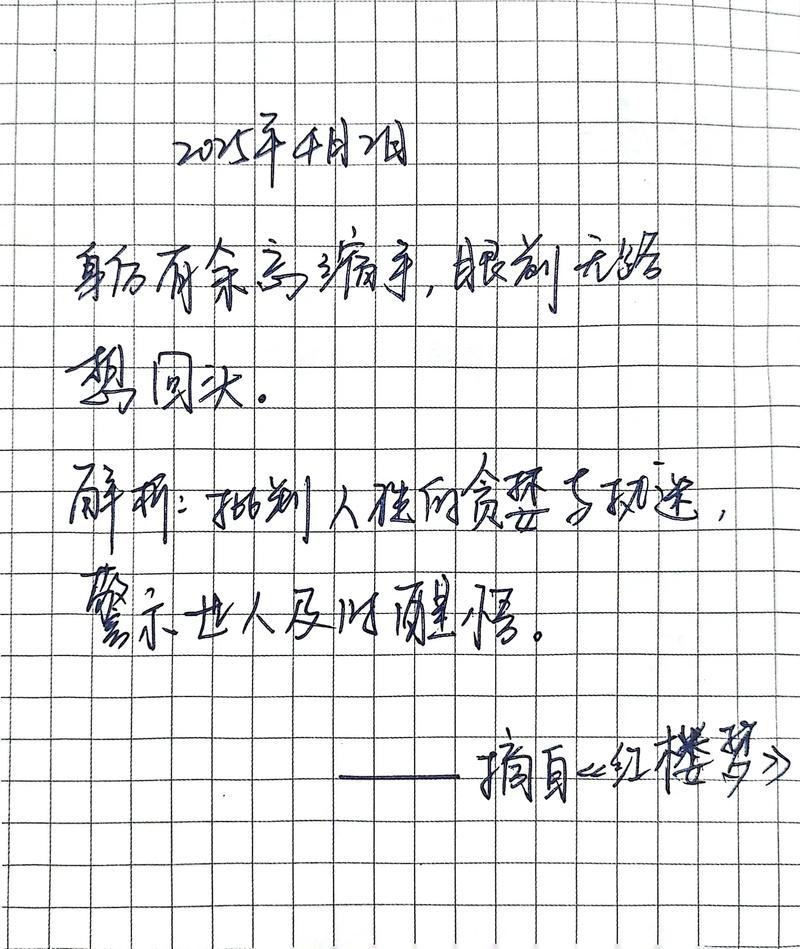 2025年4月2日
身后有余忘缩手，眼前无路
想回头。
解析：批判人性的贪婪与执迷，
警示世人及时醒悟。
——摘自《红楼梦》